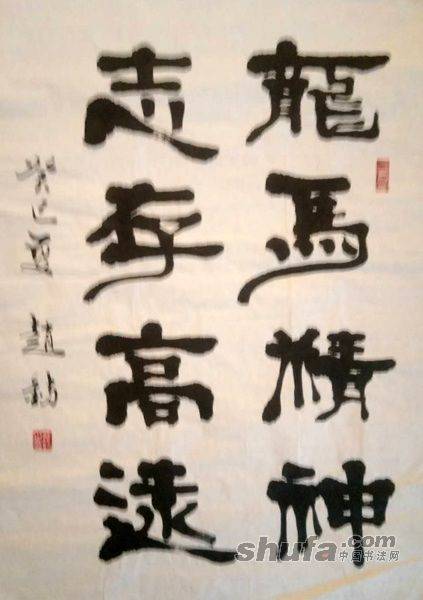 龍馬精神
志存高遠
癸巳夏 趙
shufa.com
中国书法网